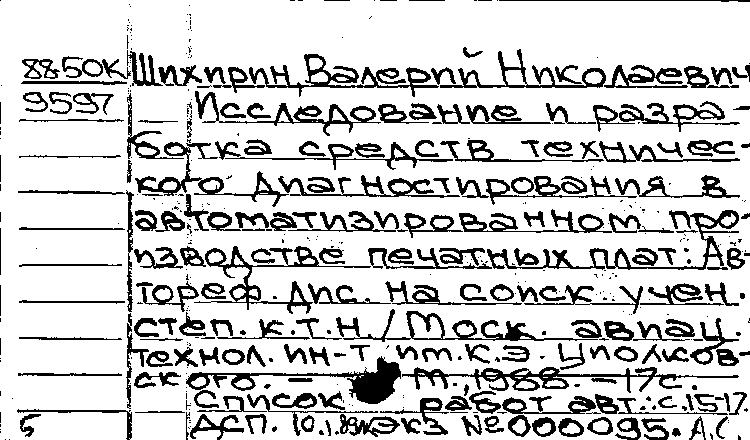 8850К Шихирин, Валерий Николаевич
9597 Исследование и разра-
ботка средств техничес-
кого диагностирования в
автоматизированном про-
изводстве печатных плат: Ав-
тореф. дис. на соиск. учен.
степ. к.т.н. / Моск. авиац.
технол. ин-т им. К.Э. Циолков-
ского. – М., 1988. – 17 с.
Список работ авт.: с. 15-17.
5 ДСП. 10.1.89 экз №000095. А.С.